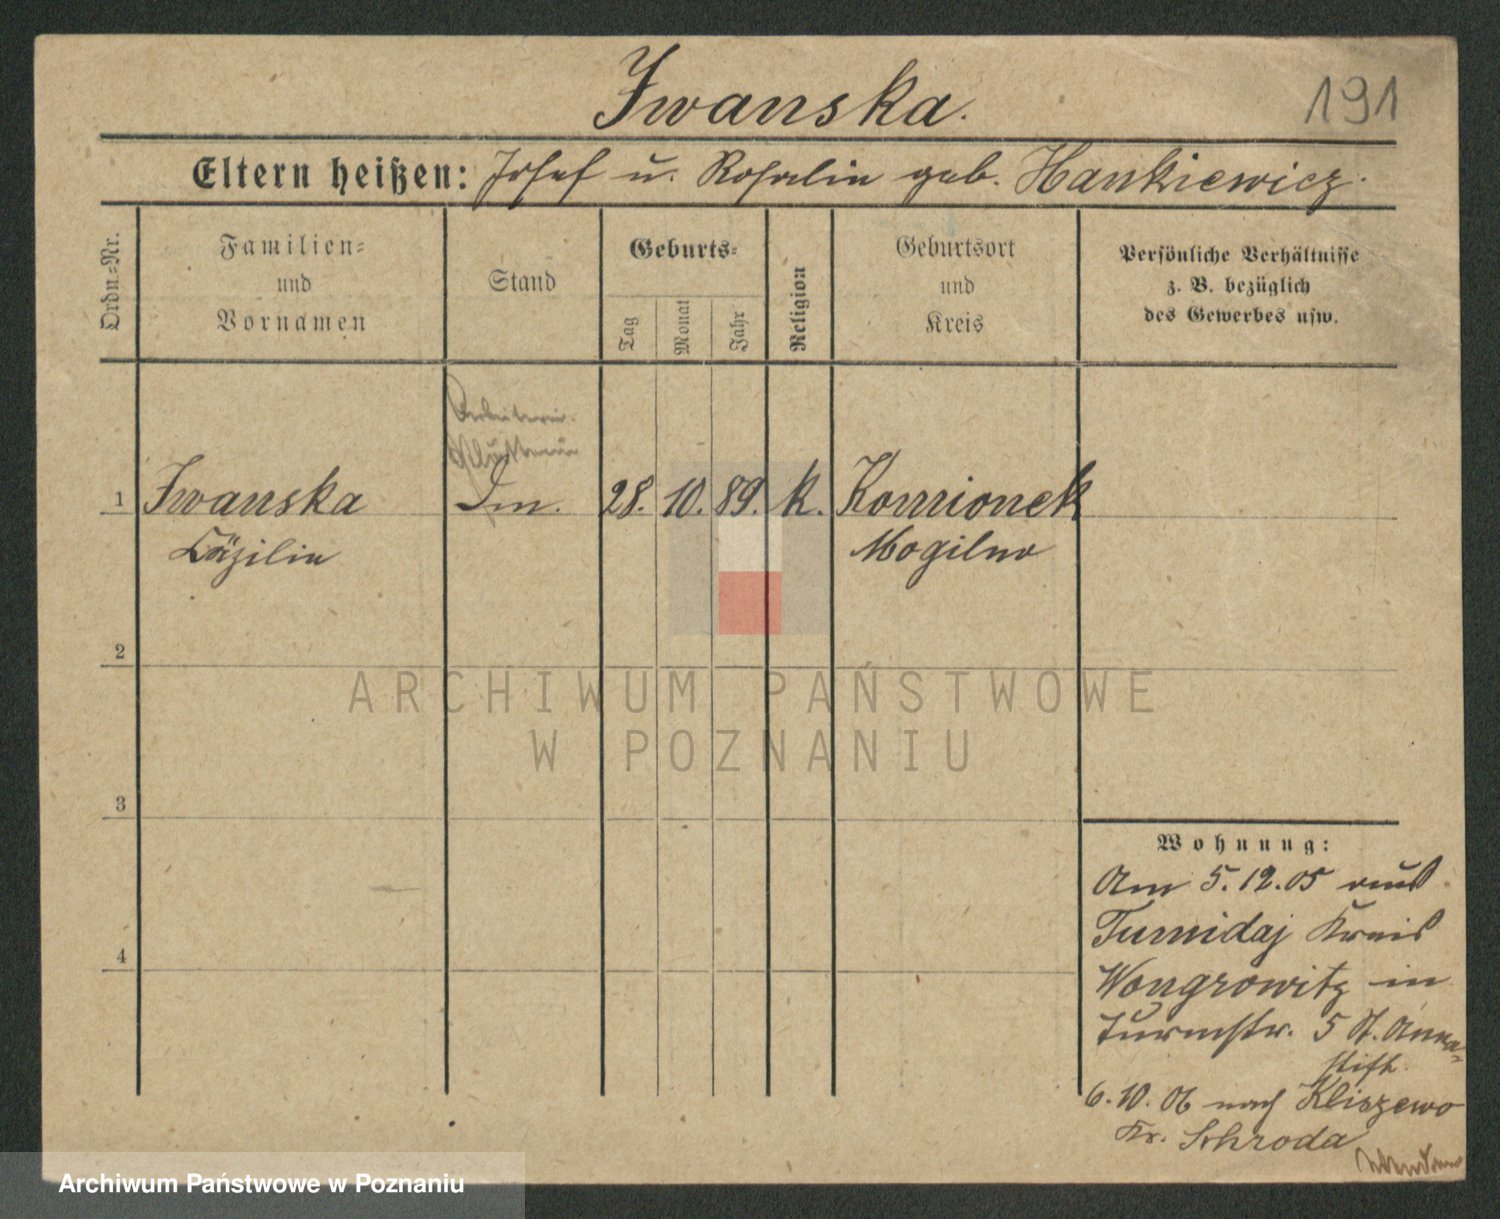 Iwanska.
191
Eltern heißen: Josef u. Rosalie geb. Hankiewicz.
Ordn.=Nr.
Familien=
und
Vornamen
Stand
Geburts=
Tag
Monat
Jahr
Religion
Geburtsort
und
Kreis
Persönliche Verhältnisse
z. B. bezüglich
des Gewerbes usw.
Arbeiterin
1 Iwanska 28. 10. 89. k. Kornionek
Cäzilie Mogilno
2
ARCHIWUM PAŃSTWOWE
W POZNANIU
3
Wohnung:
Am 5.12.05 aus
Turnidaj Kreis
Wongrowitz in
Turmstr. 5 St. Anna=
stift.
6.10.06 nach Kliszewo
Kr. Schroda
4
Archiwum Państwowe w Poznaniu